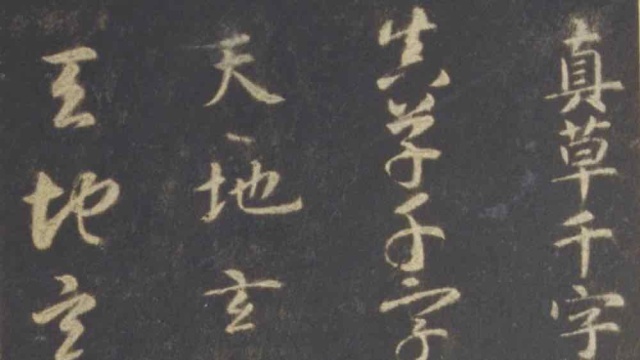 真草千字
真草千字
天地玄
天地玄